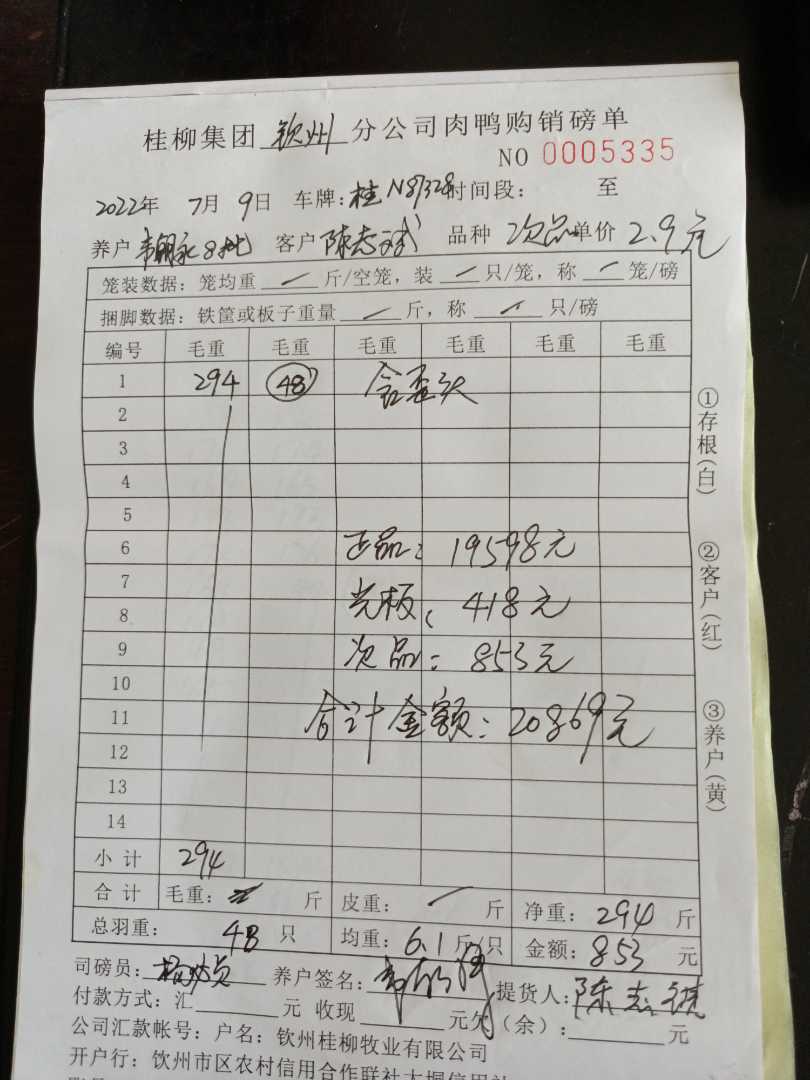 桂柳集团 钦州 分公司肉鸭购销磅单
NO 0005335
2022年 7月 9日 车牌:桂N87328时间段: 至
养户 8批 客户 陈志 品种 次品 单价 2.9元
笼装数据:笼均重 / 斤/空笼,装 / 只/笼,称 / 笼/磅
捆脚数据:铁筐或板子重量 / 斤,称 / 只/磅
编号 毛重 毛重 毛重 毛重 毛重 毛重
1 294 48 含歪头
2
3
4
5
6 正品:19598元
7
8 光板:418元
9 次品:853元
10
11 合计金额:20869元
12
13
14
小计 294
合计 毛重: 斤 皮重: / 斤 净重:294 斤
总羽重: 48 只 均重:6.1 斤/只 金额:853 元
司磅员: 养户签名: 提货人:陈志
付款方式:汇 元 收现 元欠(余): 元
公司汇款帐号:户名:钦州桂柳牧业有限公司
开户行:钦州市区农村信用合作联社大垌信用社
①存根(白)
②客户(红)
③养户(黄)